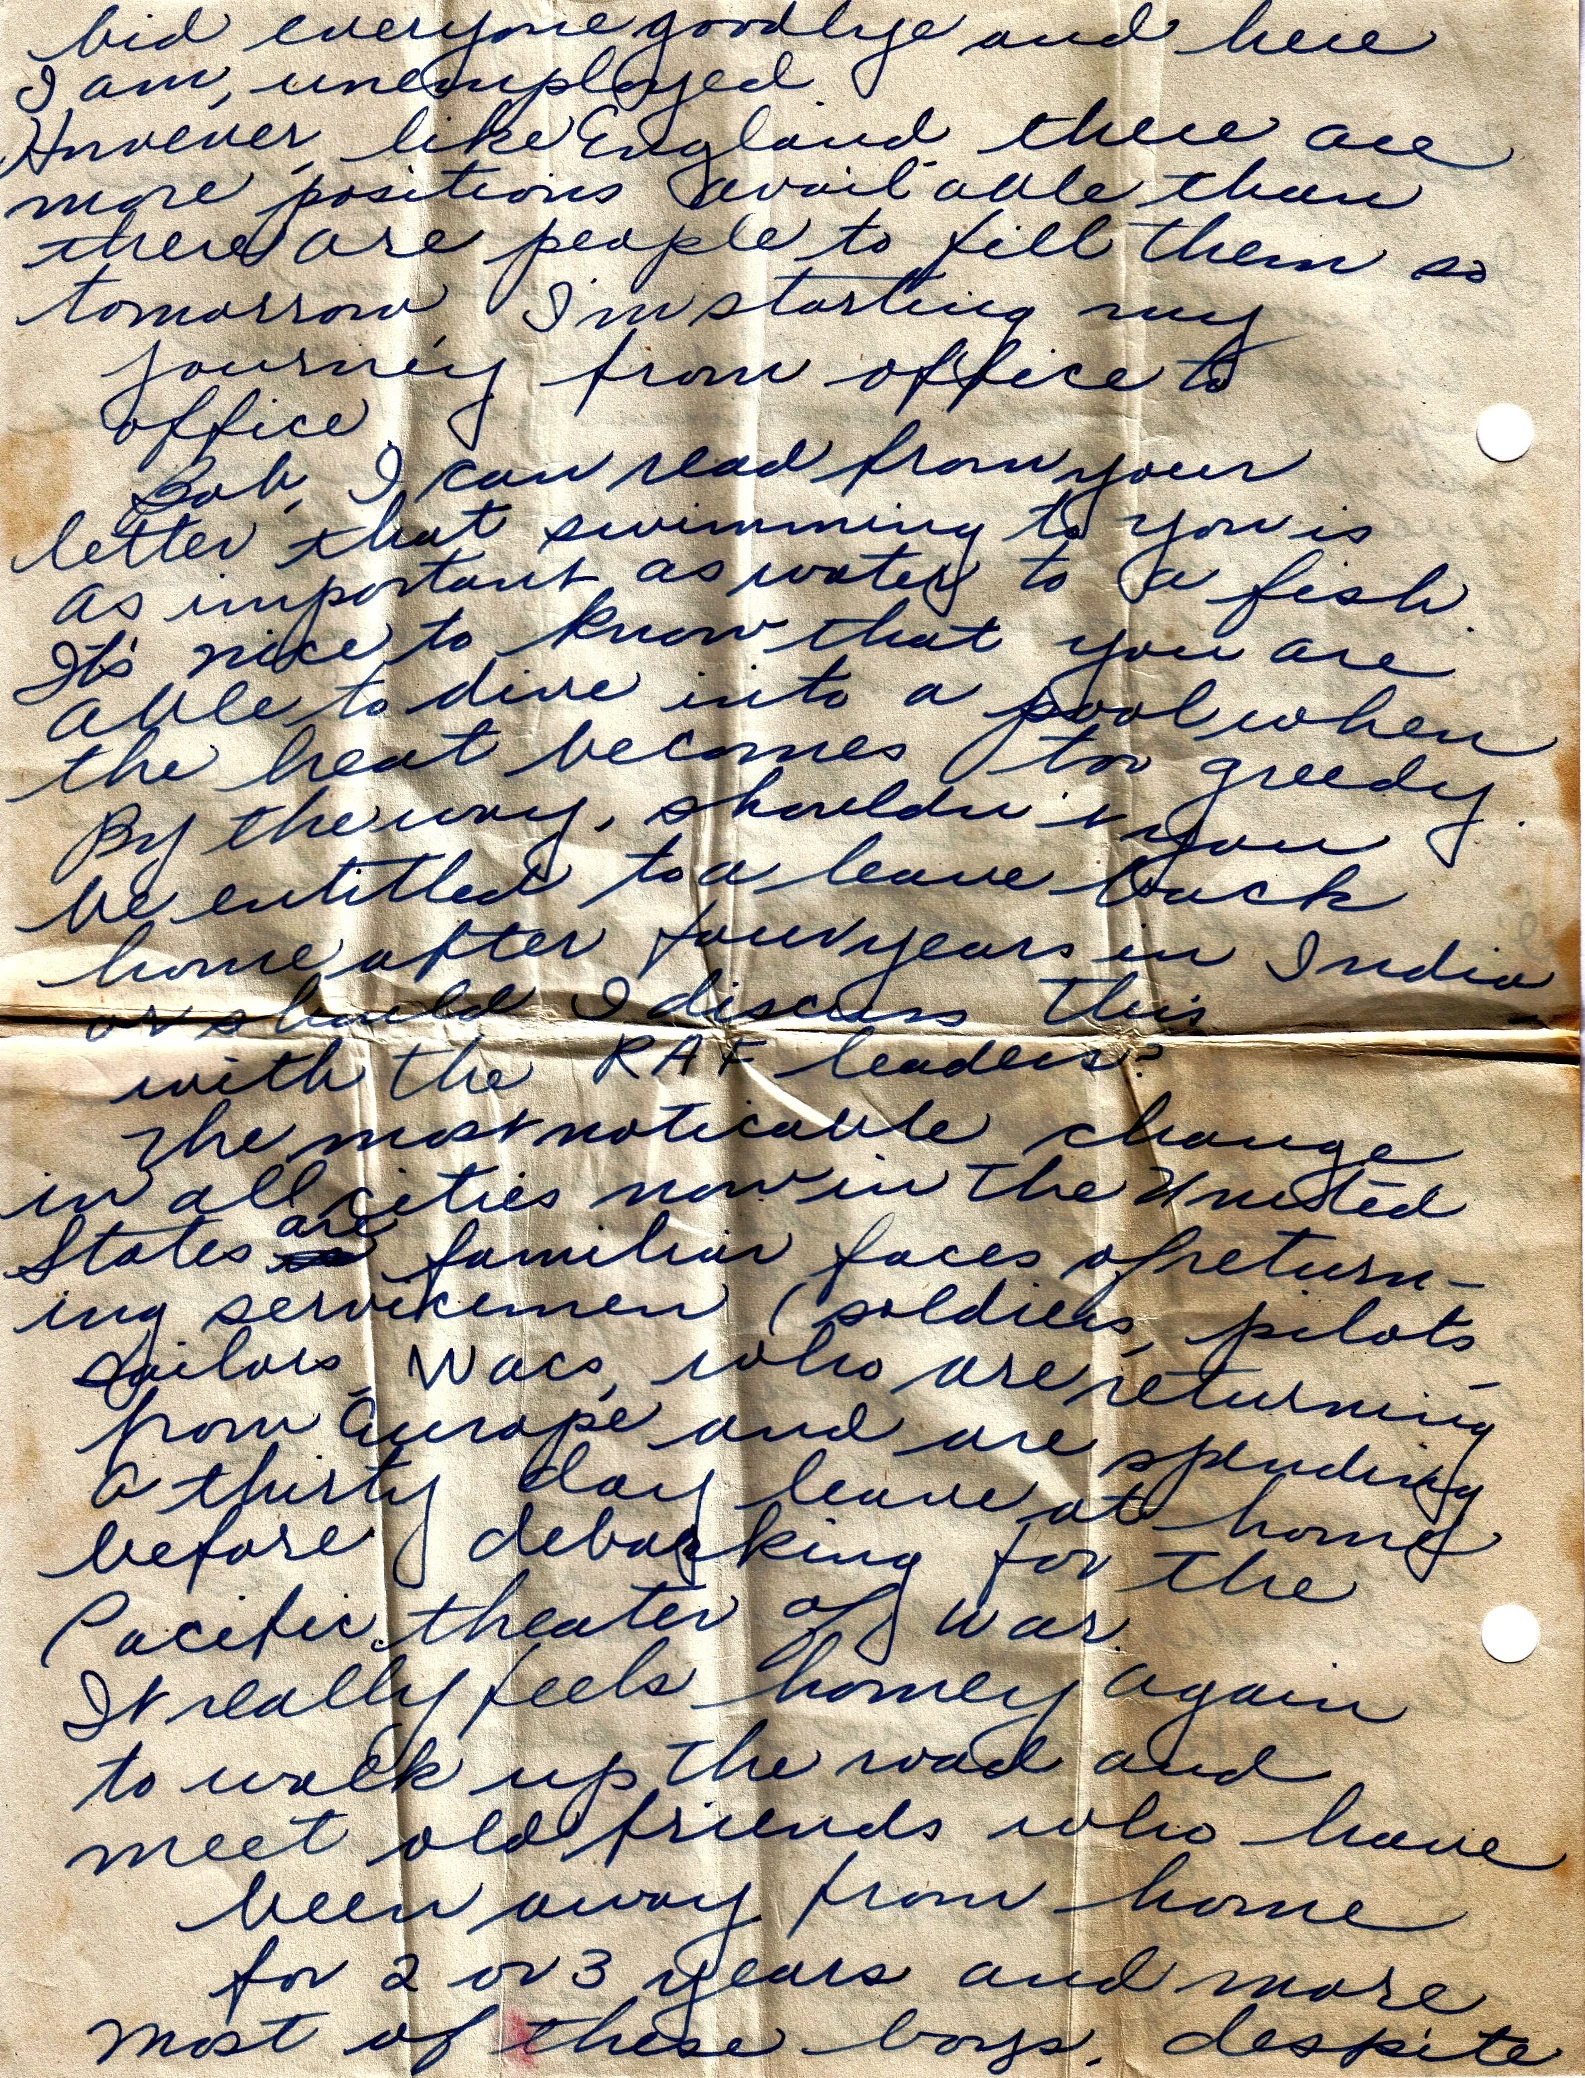 bid everyone goodbye and here
I am, unemployed
However, like England there are
more positions available than
there are people to fill them so
tomorrow I'm starting my
journey from office to
office
Bob, I can read from your
letter that swimming to you is
as important as water to a fish.
It's nice to know that you are
able to dive into a pool when
the heat becomes too greedy.
By the way, shouldn't you
be entitled to a leave back
home after four years in India
or should I discuss this
with the RAF leaders?
The most noticable change
in all cities now in the United
States are familiar faces of return-
ing servicemen (soldiers, pilots
sailors, Wacs, who are returning
from Europe and are spending
a thirty day leave at home
before debarking for the
Pacific theater of war.
It really feels homey again
to walk up the road and
meet old friends who have
been away from home
for 2 or 3 years and more
most of these boys. despite